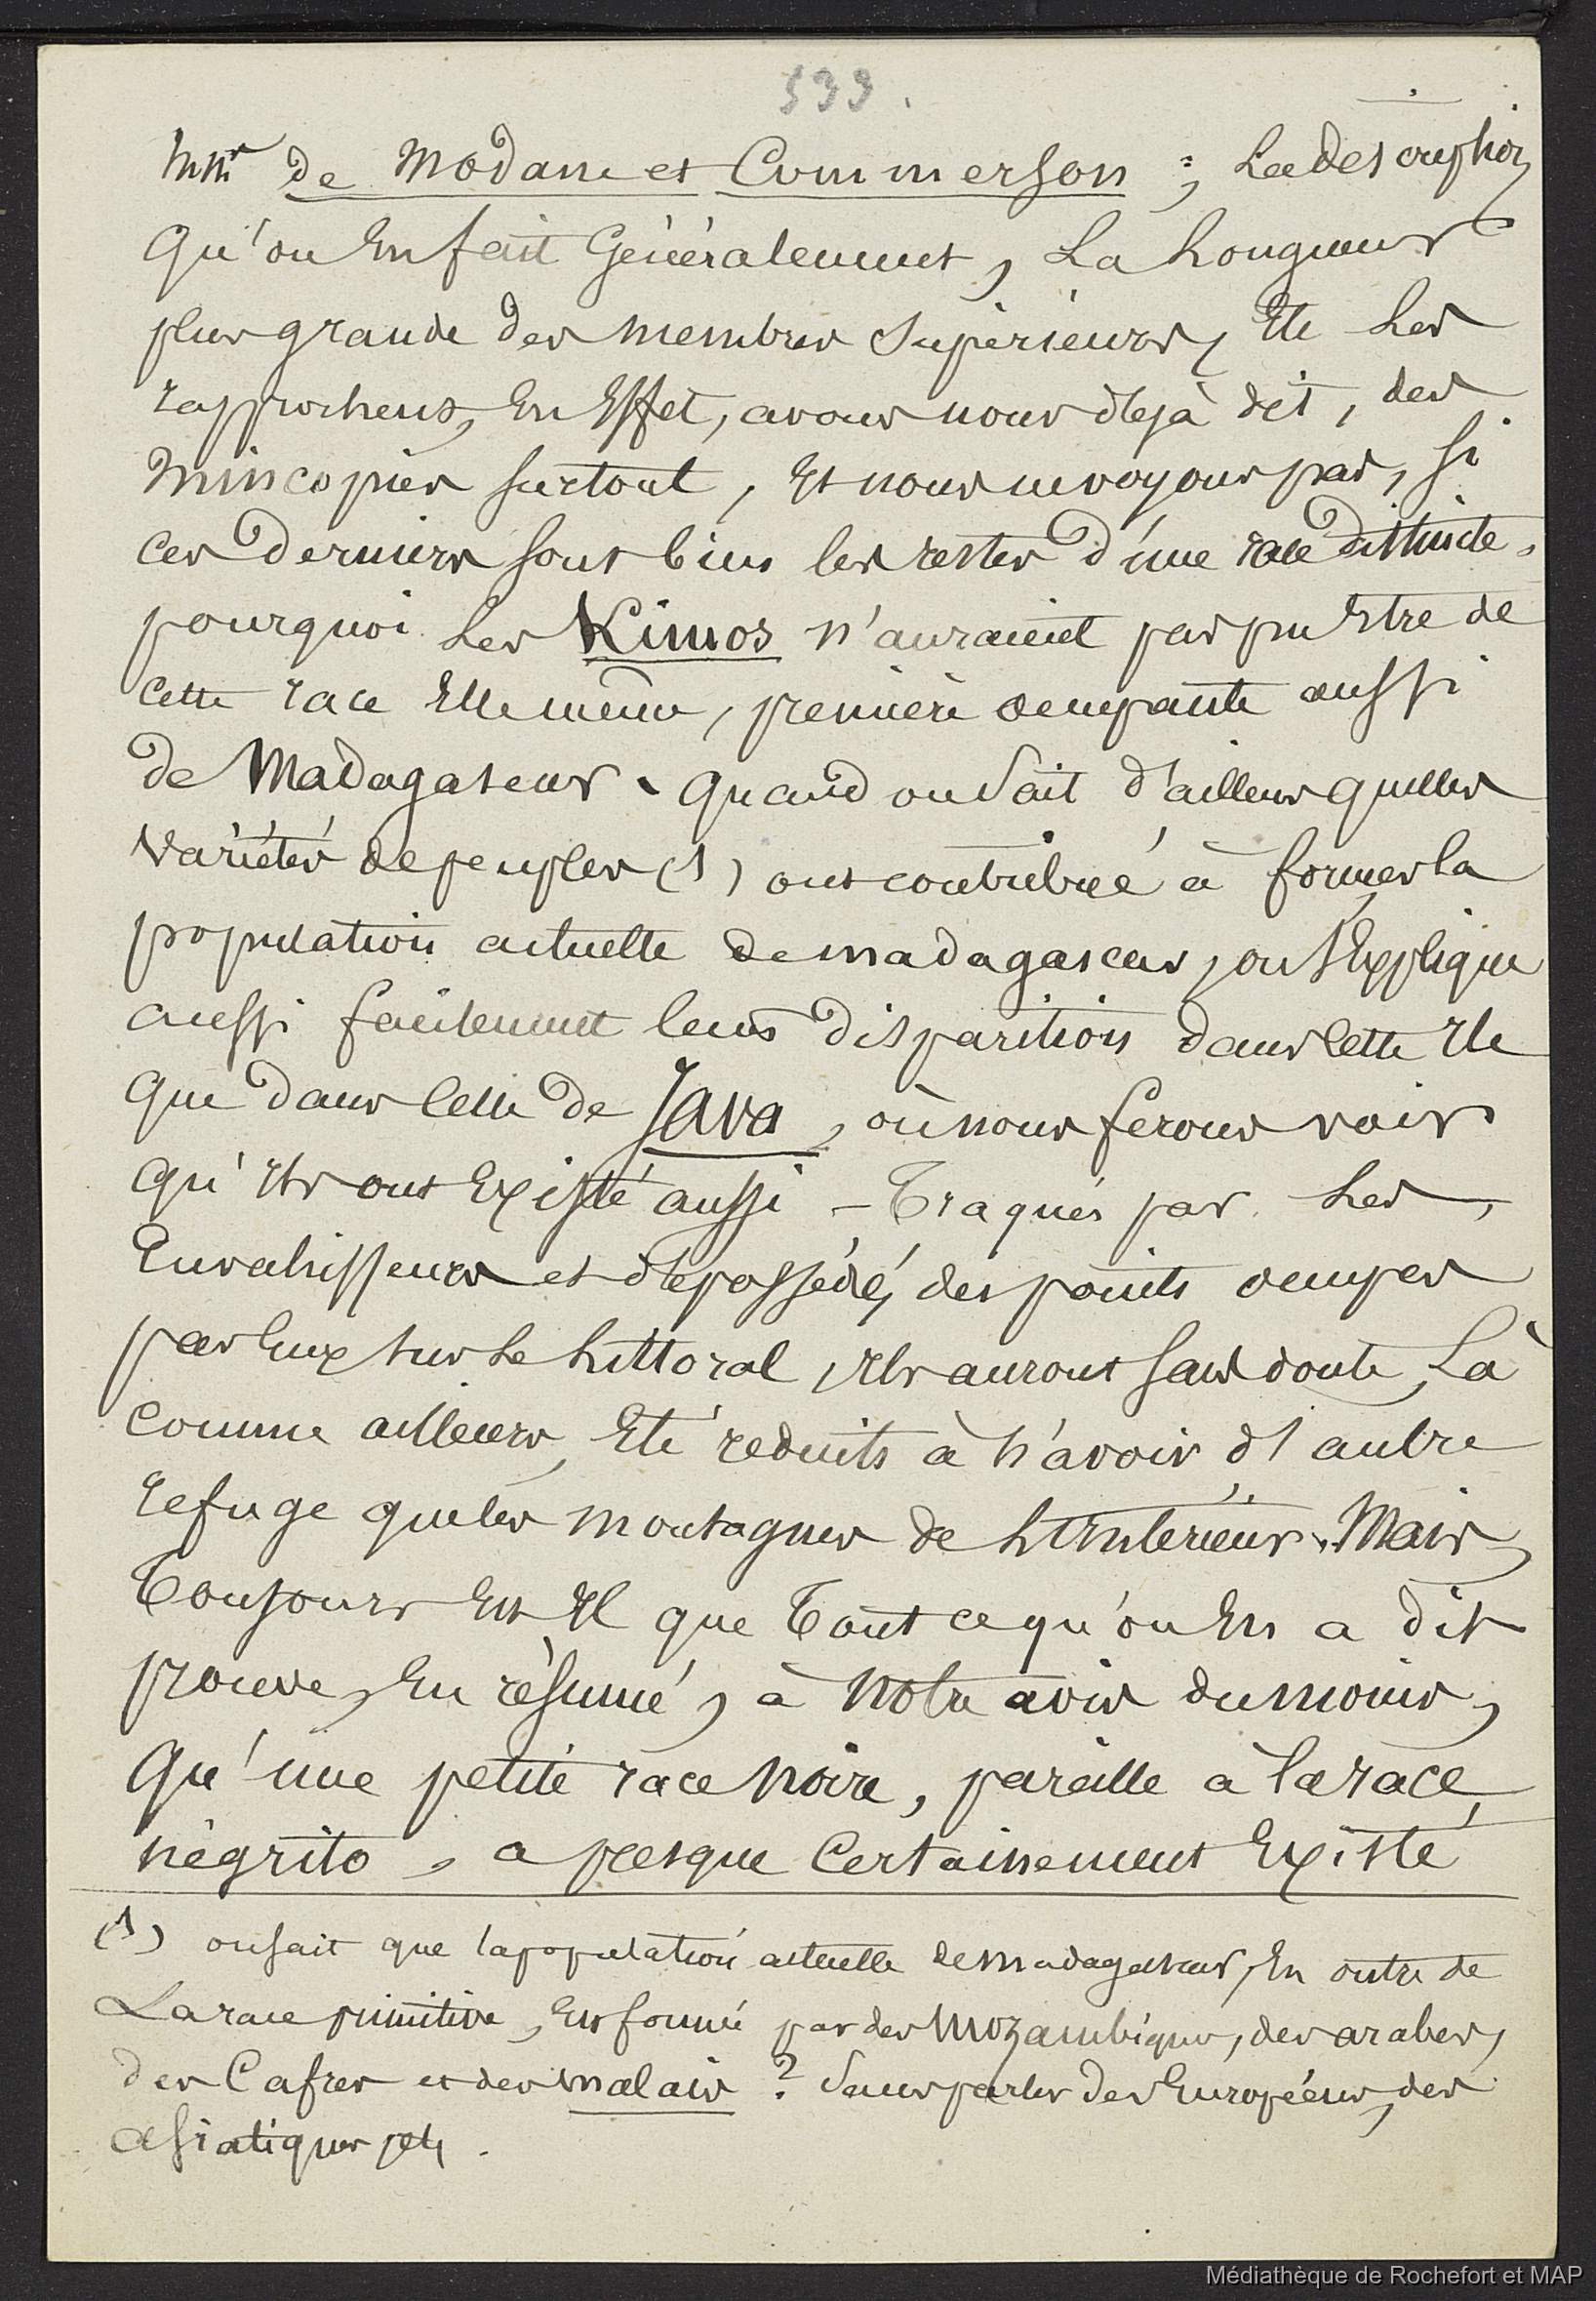 533.
MMrs de Modave et Commerson ; La description
qu'on En fait Généralement, La Longueur
plus grande des membres Supérieurs, Etc Les
rapprochent, En Effet, avons nous déjà dit, des
Mincopies surtout, Et nous ne voyons pas, si
ces derniers sont bien les restes d'une race distincte,
pourquoi Les Kimos n'auraient pas pu Etre de
cette race Elle même, première occupante aussi
de Madagascar. Quand on sait d'ailleurs quelles
variétés de peuples (1) ont contribué à former la
population actuelle de madagascar, on s'Explique
aussi facilement leur disparition dans cette Ile
que dans celle de Java, où nous ferons voir
qu'Ils ont Existé aussi - Traqués par Les
Envahisseurs et dépossédés des points occupés
par Eux sur Le Littoral, Ils auront sans doute, Là
comme ailleurs, Eté réduits à n'avoir d'autre
refuge que les montagnes de L'Intérieur. Mais
Toujours Est Il que Tout ce qu'on En a dit
prouve, En résumé, à Notre avis du moins,
qu'une petite race Noire, pareille à la race
négrito, a presque Certainement Existé
(1) on sait que la population actuelle de madagascar, En outre de
La race primitive, Est formée par des Mozambiques, des arabes,
des Cafres et des malais ? Sans parler des Européens, des
asiatiques, etc.
Médiathèque de Rochefort et MAP